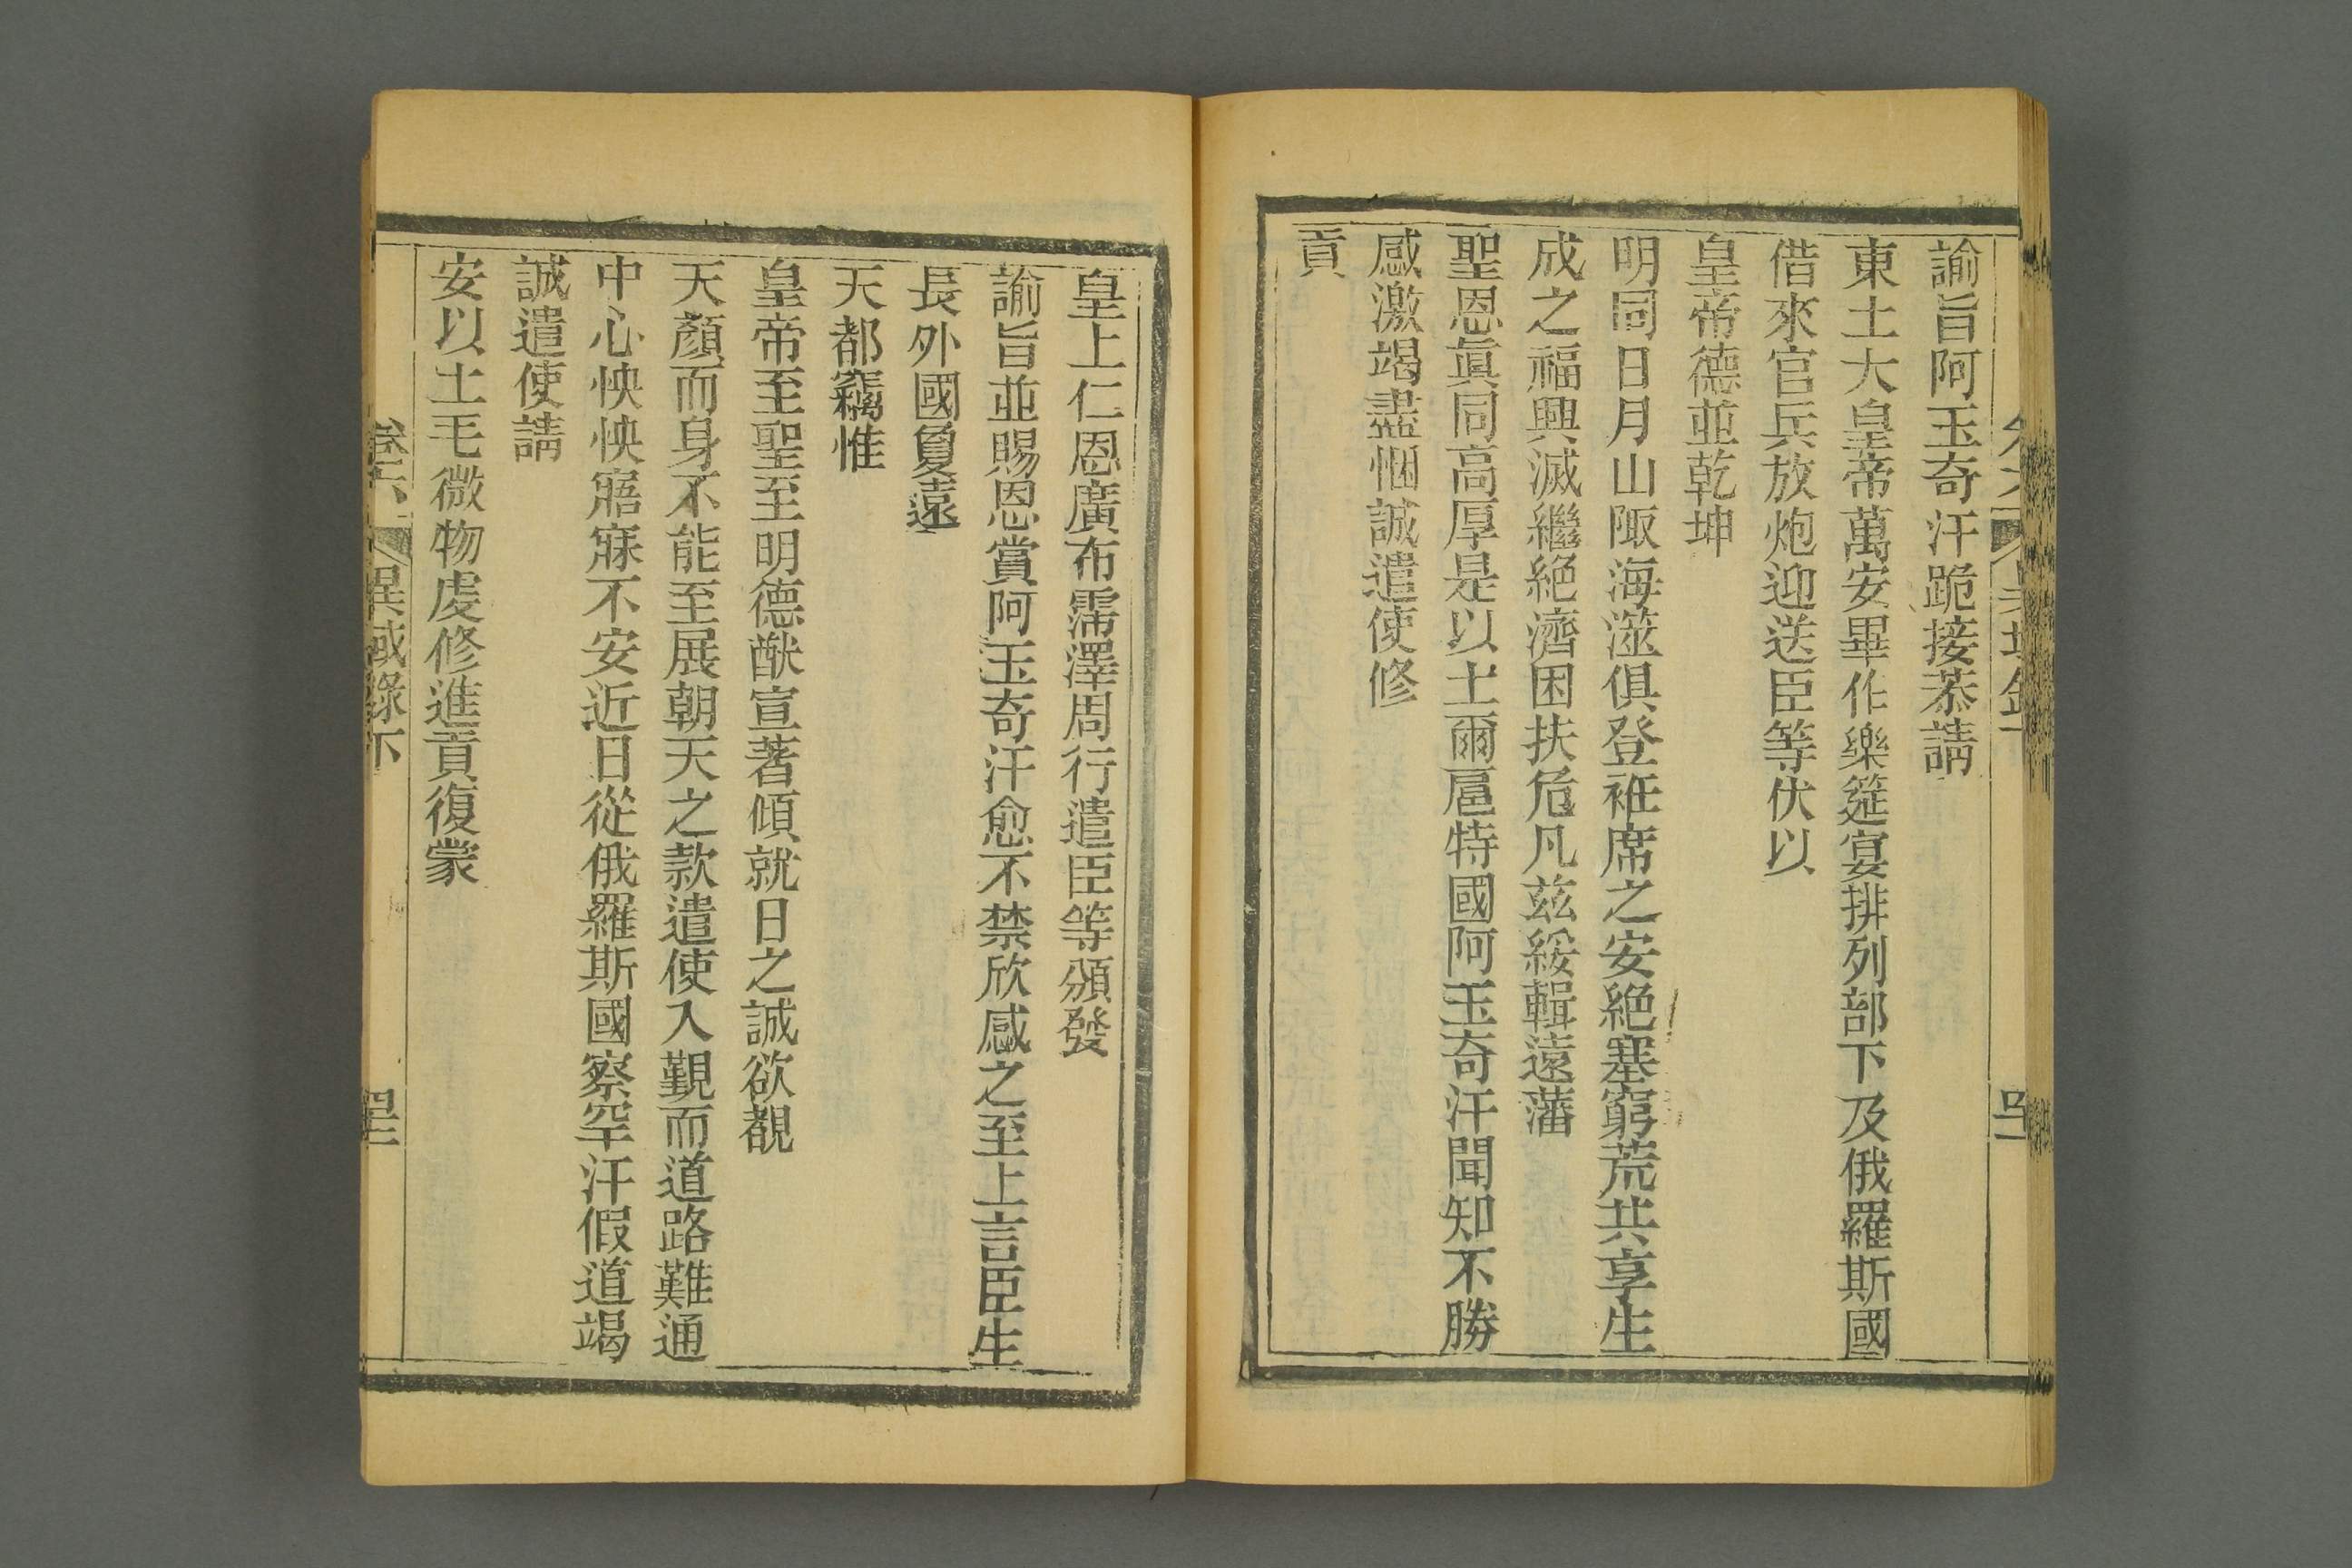 諭旨阿玉奇汗跪接恭請
東土大皇帝萬安畢作樂筵宴排列部下及俄羅斯國
借來官兵放炮迎送臣等伏以
皇帝德並乾坤
明同日月山陬海澨俱登袵席之安絕塞窮荒共享生
成之福興滅繼絕濟困扶危凡茲綏輯遠藩
聖恩眞同高厚是以土爾扈特國阿玉奇汗聞知不勝
感激竭盡悃誠遣使修
貢
皇上仁恩廣布霈澤周行遣臣等頒發
諭旨並賜恩賞阿玉奇汗愈不禁欣感之至上言臣生
長外國夐遠
天都竊惟
皇帝至聖至明德猷宣著傾就日之誠欲覩
天顏而身不能至展朝天之款遣使入覲而道路難通
中心怏怏寤寐不安近日從俄羅斯國察罕汗假道竭
誠遣使請
安以土毛微物虔修進貢復蒙
卷六 異域錄下 四三